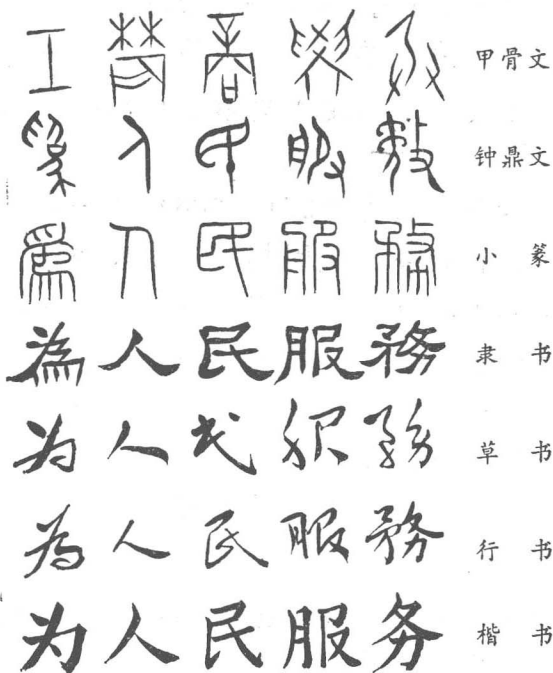 工 商 甲骨文
為 人 民 服 務 钟鼎文
為 人 民 服 務 小篆
為 人 民 服 務 隶书
为 人 民 服 務 草书
為 人 民 服 務 行书
为 人 民 服 务 楷书